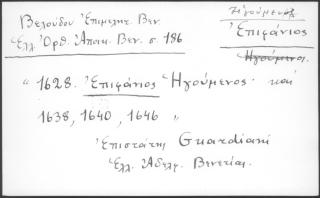 Βελούδου Ἐπιμελητ. Βεν
Ἑλλ Ὀρθ. Ἀποικ. Βεν. σ. 186
Ἡγούμενος
Ἐπιφάνιος
Ἡγούμενος.
" 1628. Ἐπιφάνιος Ἡγούμενος. καί
1638, 1640, 1646 "
Ἐπιστάτης Guardiani
Ἑλλ. Ἀδελφ. Βενετίας.